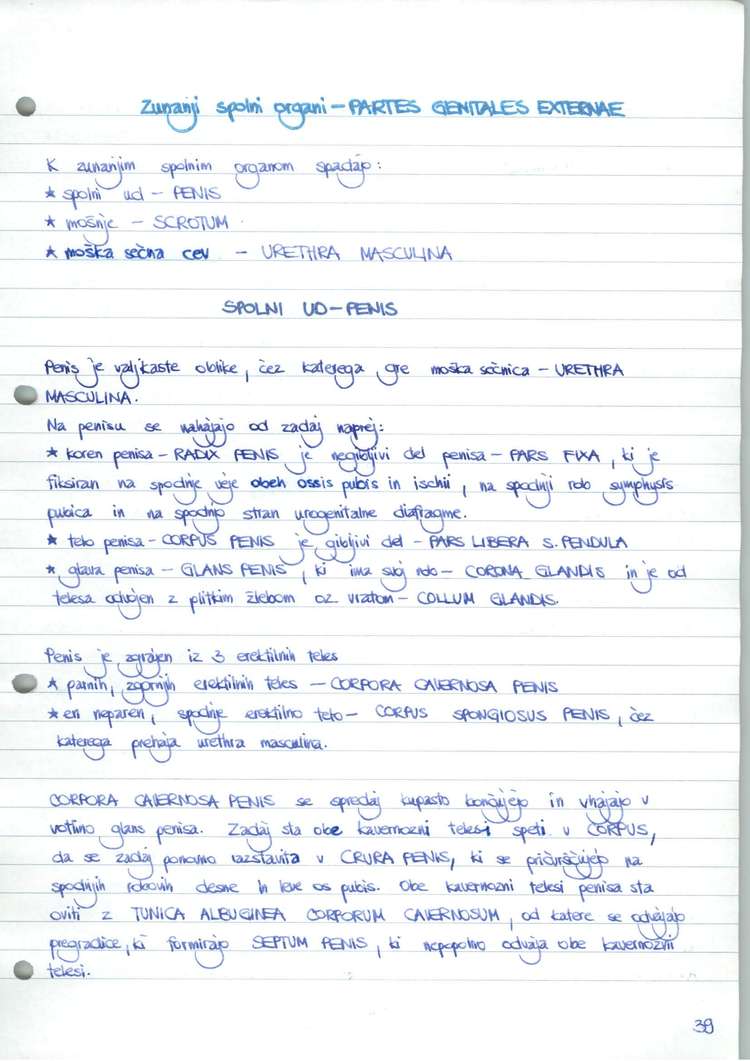 Zunanji spolni organi – PARTES GENITALES EXTERNAE
K zunanjim spolnim organom spadajo:
* spolni ud – PENIS
* mošnje – SCROTUM
* moška sečna cev – URETHRA MASCULINA
SPOLNI UD – PENIS
Penis je valjkaste oblike, čez katerega gre moška sečnica – URETHRA
MASCULINA.
Na penisu se nahajajo od zadaj naprej:
* koren penisa – RADIX PENIS je negibljivi del penisa – PARS FIXA, ki je
fiksiran na spodnje veje obeh ossis pubis in ischii, na spodnji rob symphysis
pubica in na spodnjo stran urogenitalne diafragme.
* telo penisa – CORPUS PENIS je gibljivi del – PARS LIBERA S. PENDULA
* glava penisa – GLANS PENIS, ki ima svoj rob – CORONA GLANDIS in je od
telesa odvojen z plitkim žlebom oz vratom – COLLUM GLANDIS.
Penis je zgrajen iz 3 erektilnih teles
* parnih, zgornjih erektilnih teles – CORPORA CAVERNOSA PENIS
* en neparen, spodnje erektilno telo – CORPUS SPONGIOSUS PENIS, čez
katerega prehaja urethra masculina.
CORPORA CAVERNOSA PENIS se spredaj kupasto končujejo in vhajajo v
votlino glans penisa. Zadaj sta obe kavernozni telesi speti v CORPUS,
da se zadaj ponovno razstavita v CRURA PENIS, ki se pričvrščujejo na
spodnjih robovih desne in leve os pubis. Obe kavernozni telesi penisa sta
oviti z TUNICA ALBUGINEA CORPORUM CAVERNOSUM, od katere se odvajajo
pregradice, ki formirajo SEPTUM PENIS, ki nepopolno odvaja obe kavernozni
telesi.
39